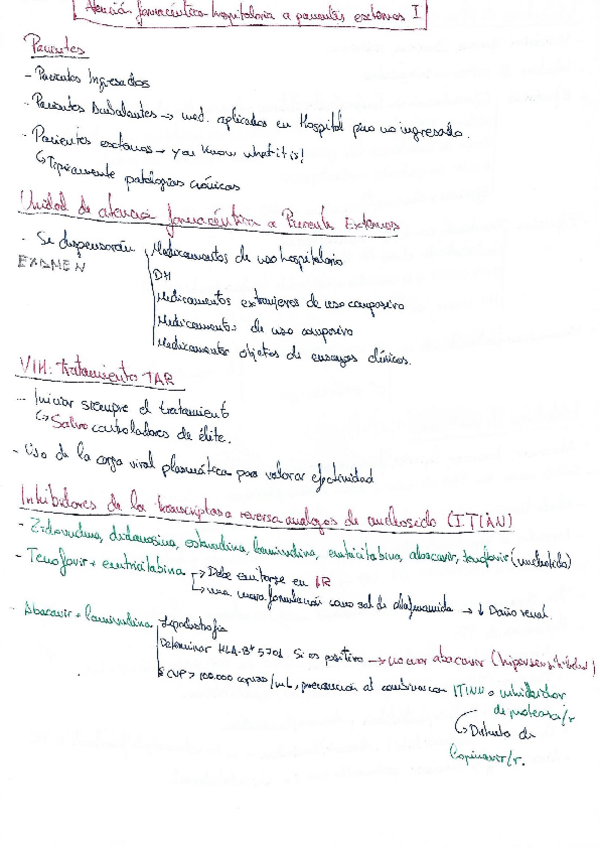 Atención farmacéutica hospitalaria a pacientes externos I
Pacientes
- Pacientes Ingresados
- Pacientes Ambulantes → med. aplicados en Hospital pero no ingresado.
- Pacientes externos → you know what it is!
↳ Típicamente patologías crónicas
Unidad de atención farmacéutica a Paciente Externos
- Se dispensarán Medicamentos de uso hospitalario
EXAMEN
DH
Medicamentos extranjeros de uso compasivo
Medicamentos de uso compasivo
Medicamentos objetos de ensayos clínicos.
VIH: Tratamientos TAR
- Iniciar siempre el tratamiento
↳ Salvo controladores de élite.
- Uso de la carga viral plasmática para valorar efectividad
Inhibidores de la transcriptasa reversa analogos de nucleosido (ITIAN)
- Zidovudina, didanosina, estavudina, lamivudina, emtricitabina, abacavir, tenofovir (nucleotido)
- Tenofovir + emtricitabina → Debe evitarse en IR
↳ una nueva formulación como sal de alafenamida → ↓ Daño renal.
- Abacavir + lamivudina Lipodistrofia
Determinar HLA-B* 5701 Si es positivo → no usar abacavir (hipersensibilidad)
Si CVP > 100.000 copias/mL, precaución al combinar con ITINN o inhibidor
de proteasa/r
↳ Distinto de
Lopinavir/r.